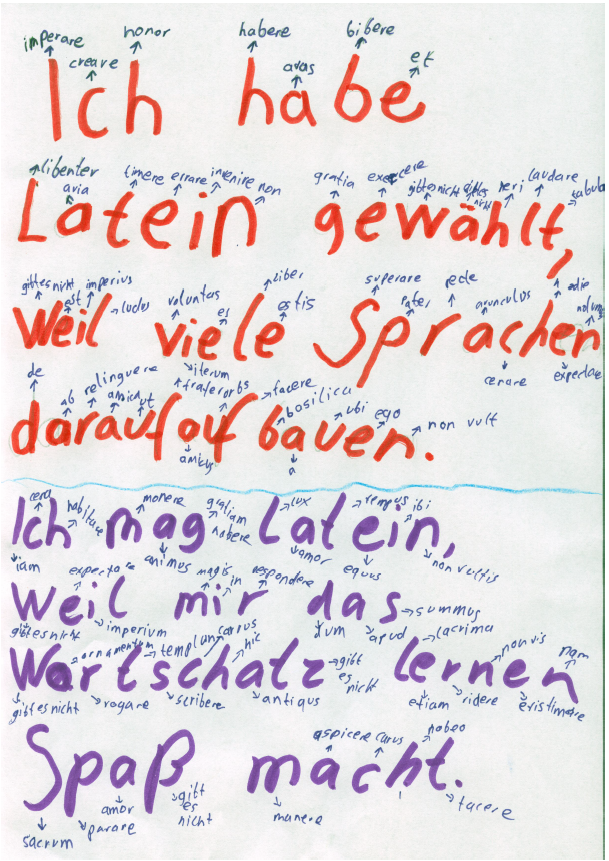 imperare honor habere bibere
creare avas et
Ich habe
libenter timere errare invenire non gratia exercere gibt es nicht gibt es nicht heri laudare tabula
avia
Latein gewählt,
gibt es nicht est imperius ludus voluntas es liber estis superare pater pede avunculus
Weil viele Sprachen
iterum cenare expectare
de ab relinquere amicus ut frater orbs facere basilica ubi ego non vult
darauf auf bauen.
amicus a
cera habitare monere lux tempus ibi
Ich mag Latein,
iam animus habere amor equus non vultis
expectare magis in respondere
Weil mir das summus
gibt es nicht imperium tum apud lacrima
ornamentum templum carrus hic gibt es nicht non vis nam
Wortschatz lernen
gibt es nicht rogare scribere antiqus etiam ridere existimare
aspicere carus habeo
Spaß macht.
sacrum parare amor gibt es nicht manere tacere